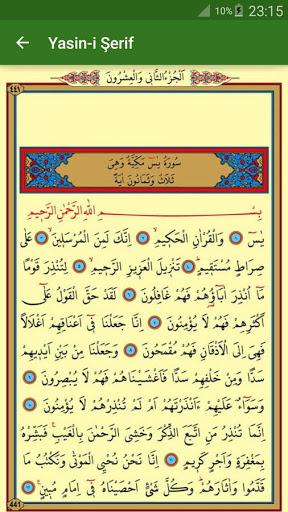 10% 23:15
Yasin-i Şerif
٤٤١ اَلْجُزْءُ الثَّانِى وَالْعِشْرُونَ
سُورَةُ يٰسٓ مَكِّيَّةٌ وَهِىَ
ثَلَاثٌ وَثَمَانُونَ اٰيَةً
بِسْمِ اللّٰهِ الرَّحْمٰنِ الرَّحٖيمِ
يٰسٓ ١ وَالْقُرْاٰنِ الْحَكٖيمِ ٢ اِنَّكَ لَمِنَ الْمُرْسَلٖينَ ٣ عَلٰى
صِرَاطٍ مُسْتَقٖيمٍ ٤ تَنْزٖيلَ الْعَزٖيزِ الرَّحٖيمِ ٥ لِتُنْذِرَ قَوْمًا
مَٓا اُنْذِرَ اٰبَٓاؤُ۬هُمْ فَهُمْ غَافِلُونَ ٦ لَقَدْ حَقَّ الْقَوْلُ عَلٰٓى
اَكْثَرِهِمْ فَهُمْ لَا يُؤْمِنُونَ ٧ اِنَّا جَعَلْنَا فٖٓى اَعْنَاقِهِمْ اَغْلَالًا
فَهِىَ اِلَى الْاَذْقَانِ فَهُمْ مُقْمَحُونَ ٨ وَجَعَلْنَا مِنْ بَيْنِ اَيْدٖيهِمْ
سَدًّا وَمِنْ خَلْفِهِمْ سَدًّا فَاَغْشَيْنَاهُمْ فَهُمْ لَا يُبْصِرُونَ ٩
وَسَوَٓاءٌ عَلَيْهِمْ ءَاَنْذَرْتَهُمْ اَمْ لَمْ تُنْذِرْهُمْ لَا يُؤْمِنُونَ ١٠
اِنَّمَا تُنْذِرُ مَنِ اتَّبَعَ الذِّكْرَ وَخَشِىَ الرَّحْمٰنَ بِالْغَيْبِ فَبَشِّرْهُ
بِمَغْفِرَةٍ وَاَجْرٍ كَرٖيمٍ ١١ اِنَّا نَحْنُ نُحْيِ الْمَوْتٰى وَنَكْتُبُ مَا
قَدَّمُوا وَاٰثَارَهُمْ وَكُلَّ شَىْءٍ اَحْصَيْنَاهُ فٖٓى اِمَامٍ مُبٖينٍ ١٢
441